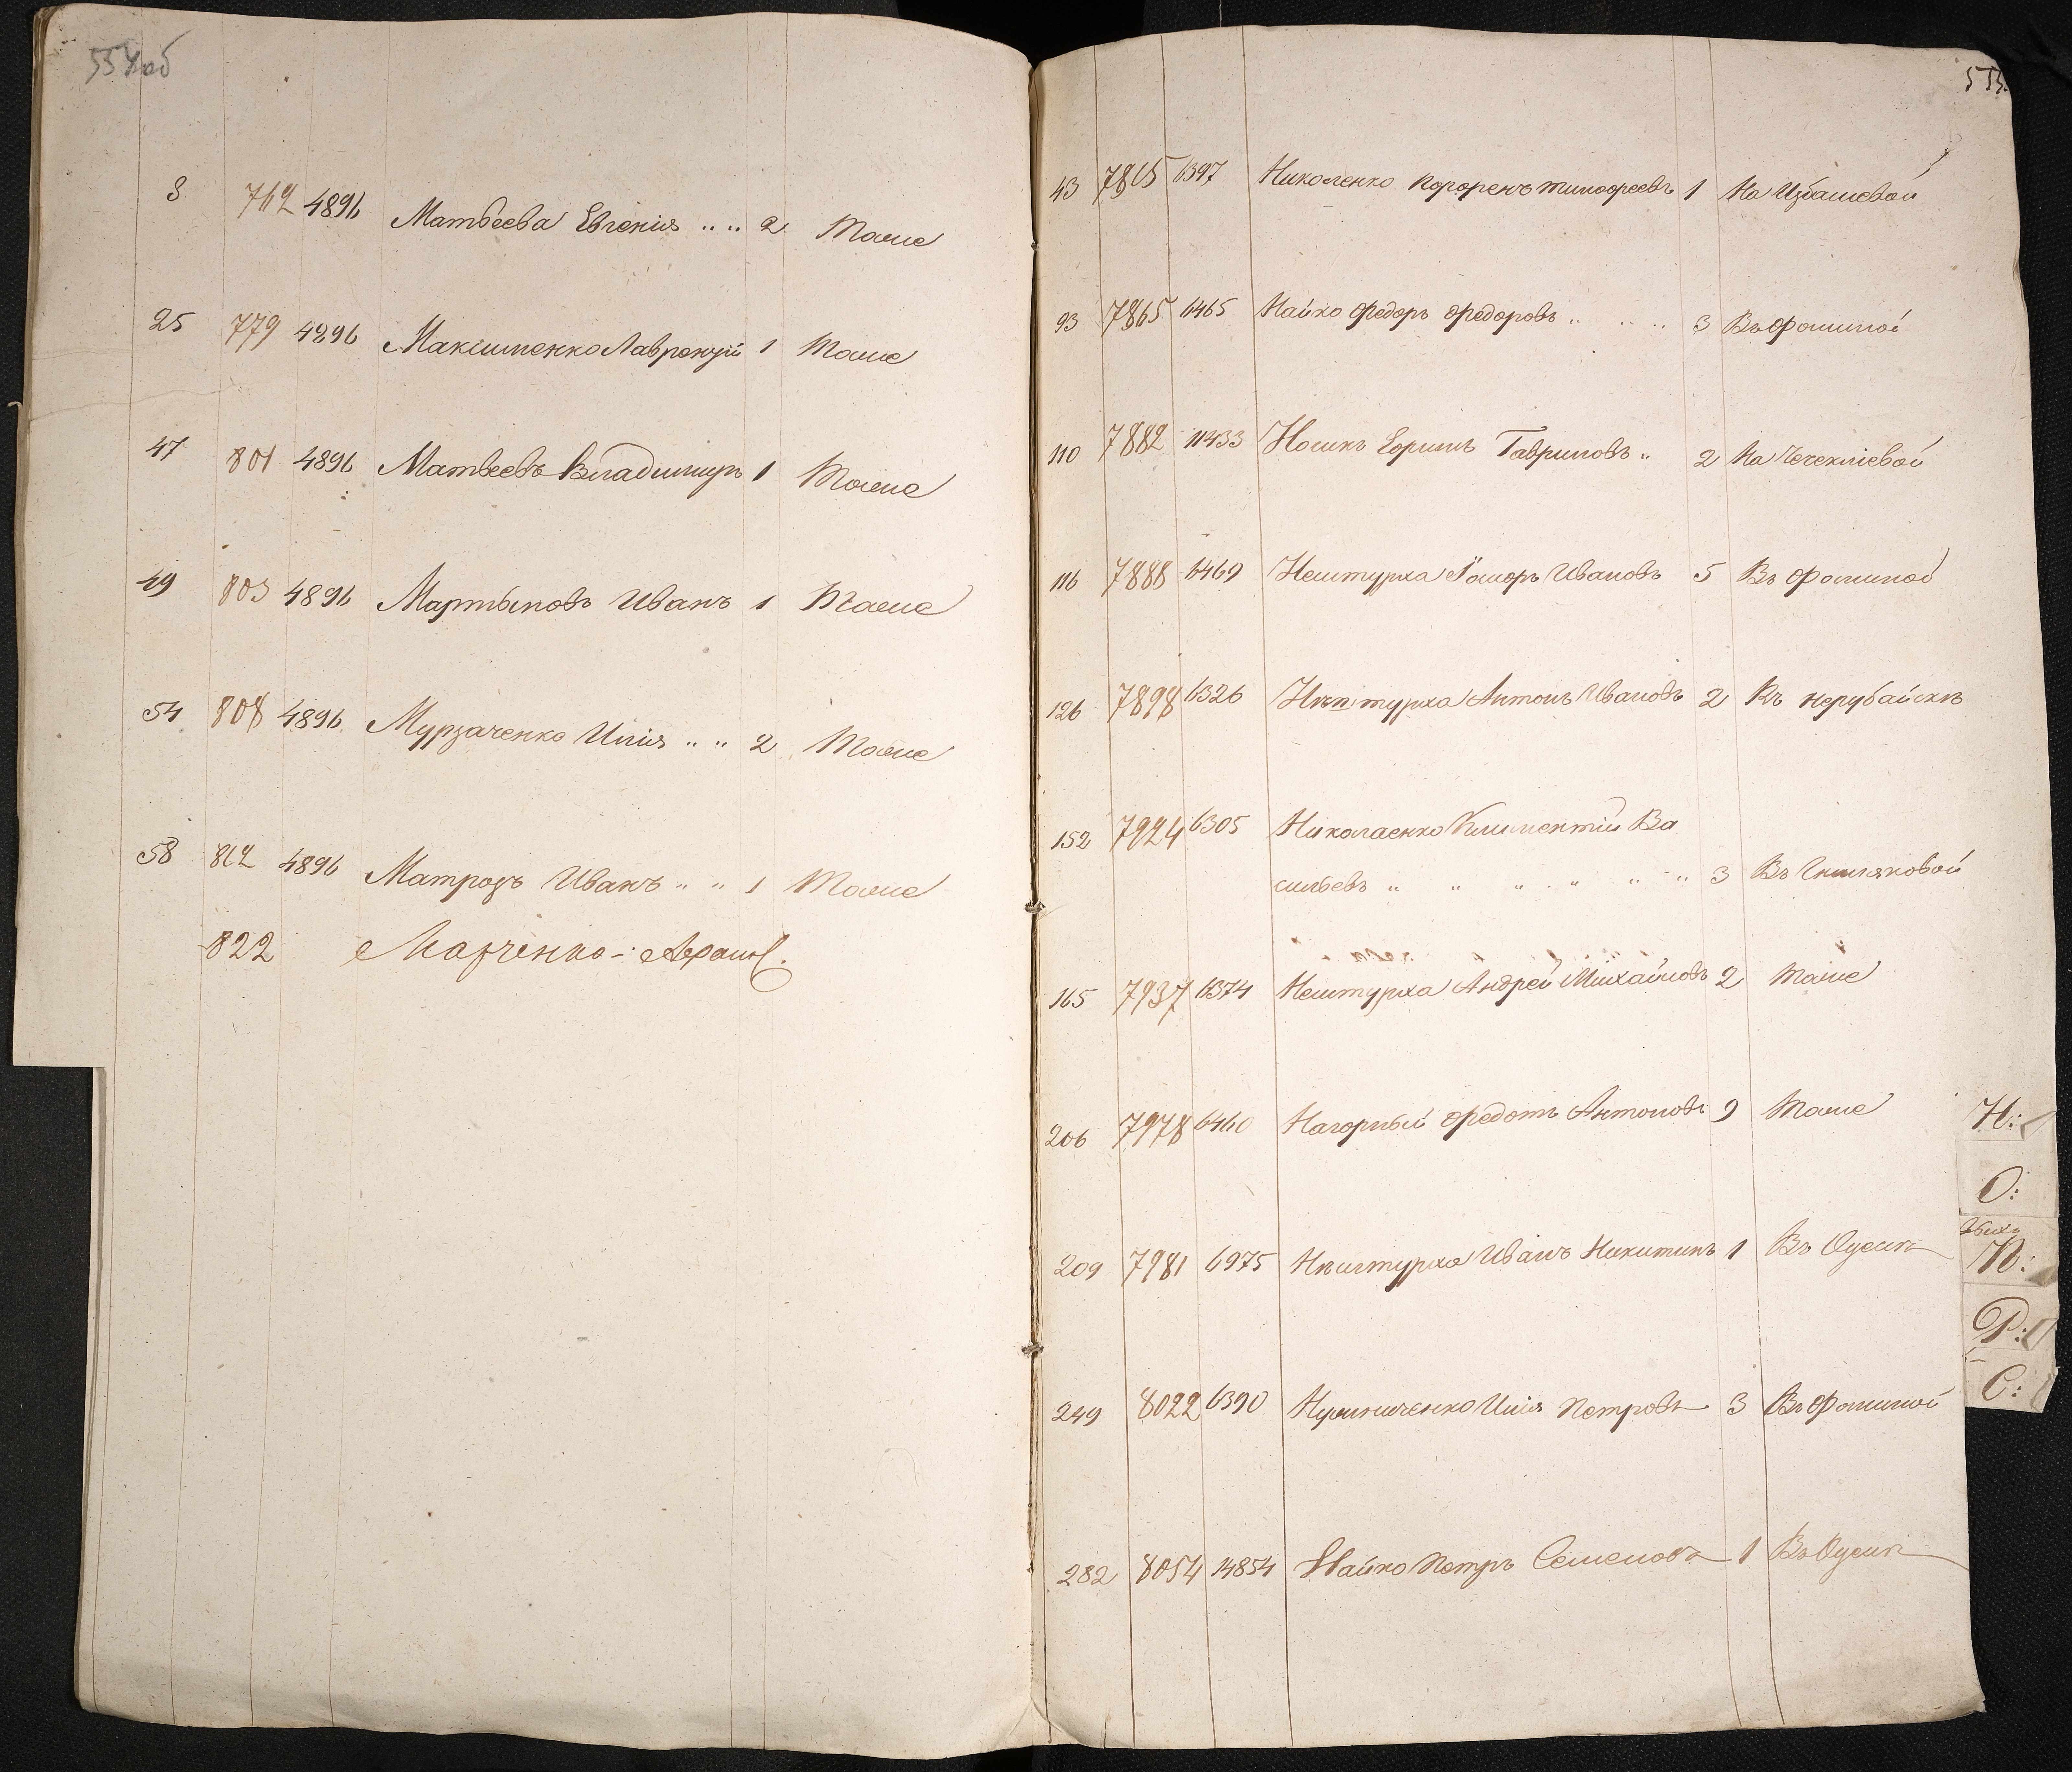 8 762 4896 Матвеева Евгенія .. .. 2 Тоже
25 779 4896 Максименко Лаврентій 1 Тоже
47 801 4896 Матвеевъ Владимиръ 1 Тоже
49 803 4896 Мартыновъ Иванъ 1 Тоже
54 808 4896 Мурзаченко Илія .. .. 2 Тоже
58 812 4896 Матрозъ Иванъ .. .. 1 Тоже
822 Марченко
43 7815 6397 Николенко Тимофеевъ 1 На
93 7865 6465 Найко Федоръ Федоровъ .. .. .. 3 Въ Фоминой
110 7882 11433 Носикъ Гавриловъ .. 2 На
116 7888 6469 Нештурха Ивановъ 5 Въ Фоминой
126 7898 6326 Антонъ Ивановъ 2 Въ Нерубайскѣ
152 7924 6305 Николаенко Климентій Ва
сильевъ „ „ „ „ „ „ 3 Въ Гниляковой
165 7937 6374 Нештурха Андрей Михайловъ 2 Тоже
206 7978 6460 Нагорный Федотъ Антоновъ 9 Тоже
Н:
О:
209 7981 6975 Нештурха Иванъ Никитинъ 1 Въ Одесѣ
П:
Р:
С:
249 8022 6390 Илія Петровъ 3 Въ Фоминой
282 8054 14854 Найко Петръ Семеновъ 1 Въ Одесѣ